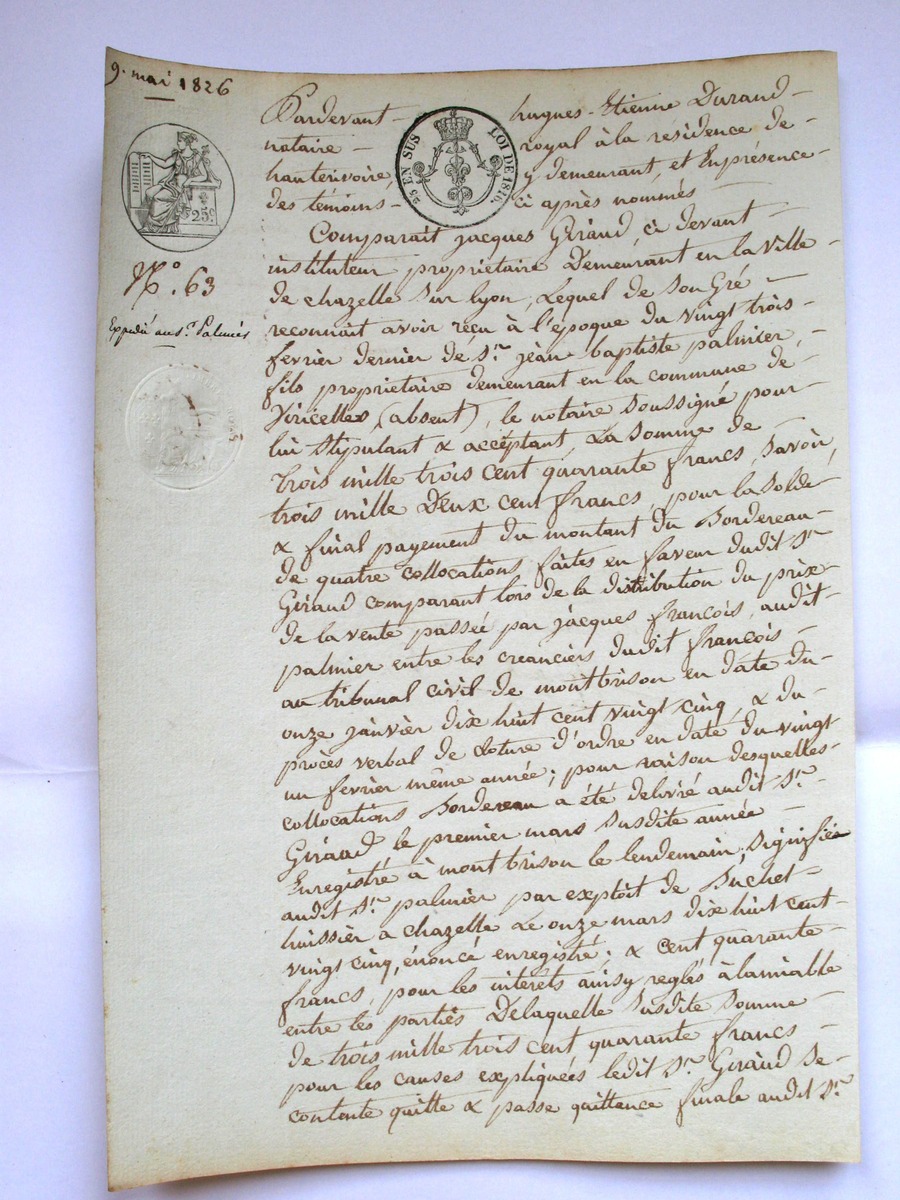 9. mai 1826
25c
N° 63
Expédié au sr. Palmier
25 EN SUS LOI DE 1816.
Pardevant hugues-Etienne Durand
notaire royal à la résidence de
hauterivoire, y demeurant, et En présence
des témoins ci après nommés
Comparait jacques Giraud, ci devant
instituteur propriétaire Demeurant en la ville
de chazelle sur lyon, Lequel de son Gré
reconnoit avoir reçu à l'époque du vingt trois
fevrier dernier de Sr. jean baptiste palmier,
fils propriétaire demeurant en la commune de
Viricelles (absent), le notaire soussigné pour
lui stipulant & acceptant, La somme de
trois mille trois cent quarante francs, savoir,
trois mille Deux cent francs, pour la solde
& final payement du montant du Bordereau
de quatre collocations faites en faveur dudit Sr
Giraud comparant lors de la distribution du prix
de la vente passée par jacques françois, audit
palmier entre les creanciers dudit françois
au tribunal civil de montbrison en date du
onze janvier dix huit cent vingt cinq, & du
procès verbal de cloture d'ordre en date du vingt
un fevrier même année; pour raison desquelles
collocations Bordereau a été delivré audit Sr.
Giraud le premier mars susdite année
Enregistré à montbrison le lendemain, signifié
audit Sr. palmier par exploit de Buchet
huissier à chazelle Le onze mars dix huit cent
vingt cinq, énoncé enregistré; & cent quarante
francs, pour les interêts ainsy reglés à lamiable
entre les parties Delaquelle susdite somme
de trois mille trois cent quarante francs
pour les causes expliquées ledit Sr. Giraud se
contente quitte & passe quittance finale audit Sr.